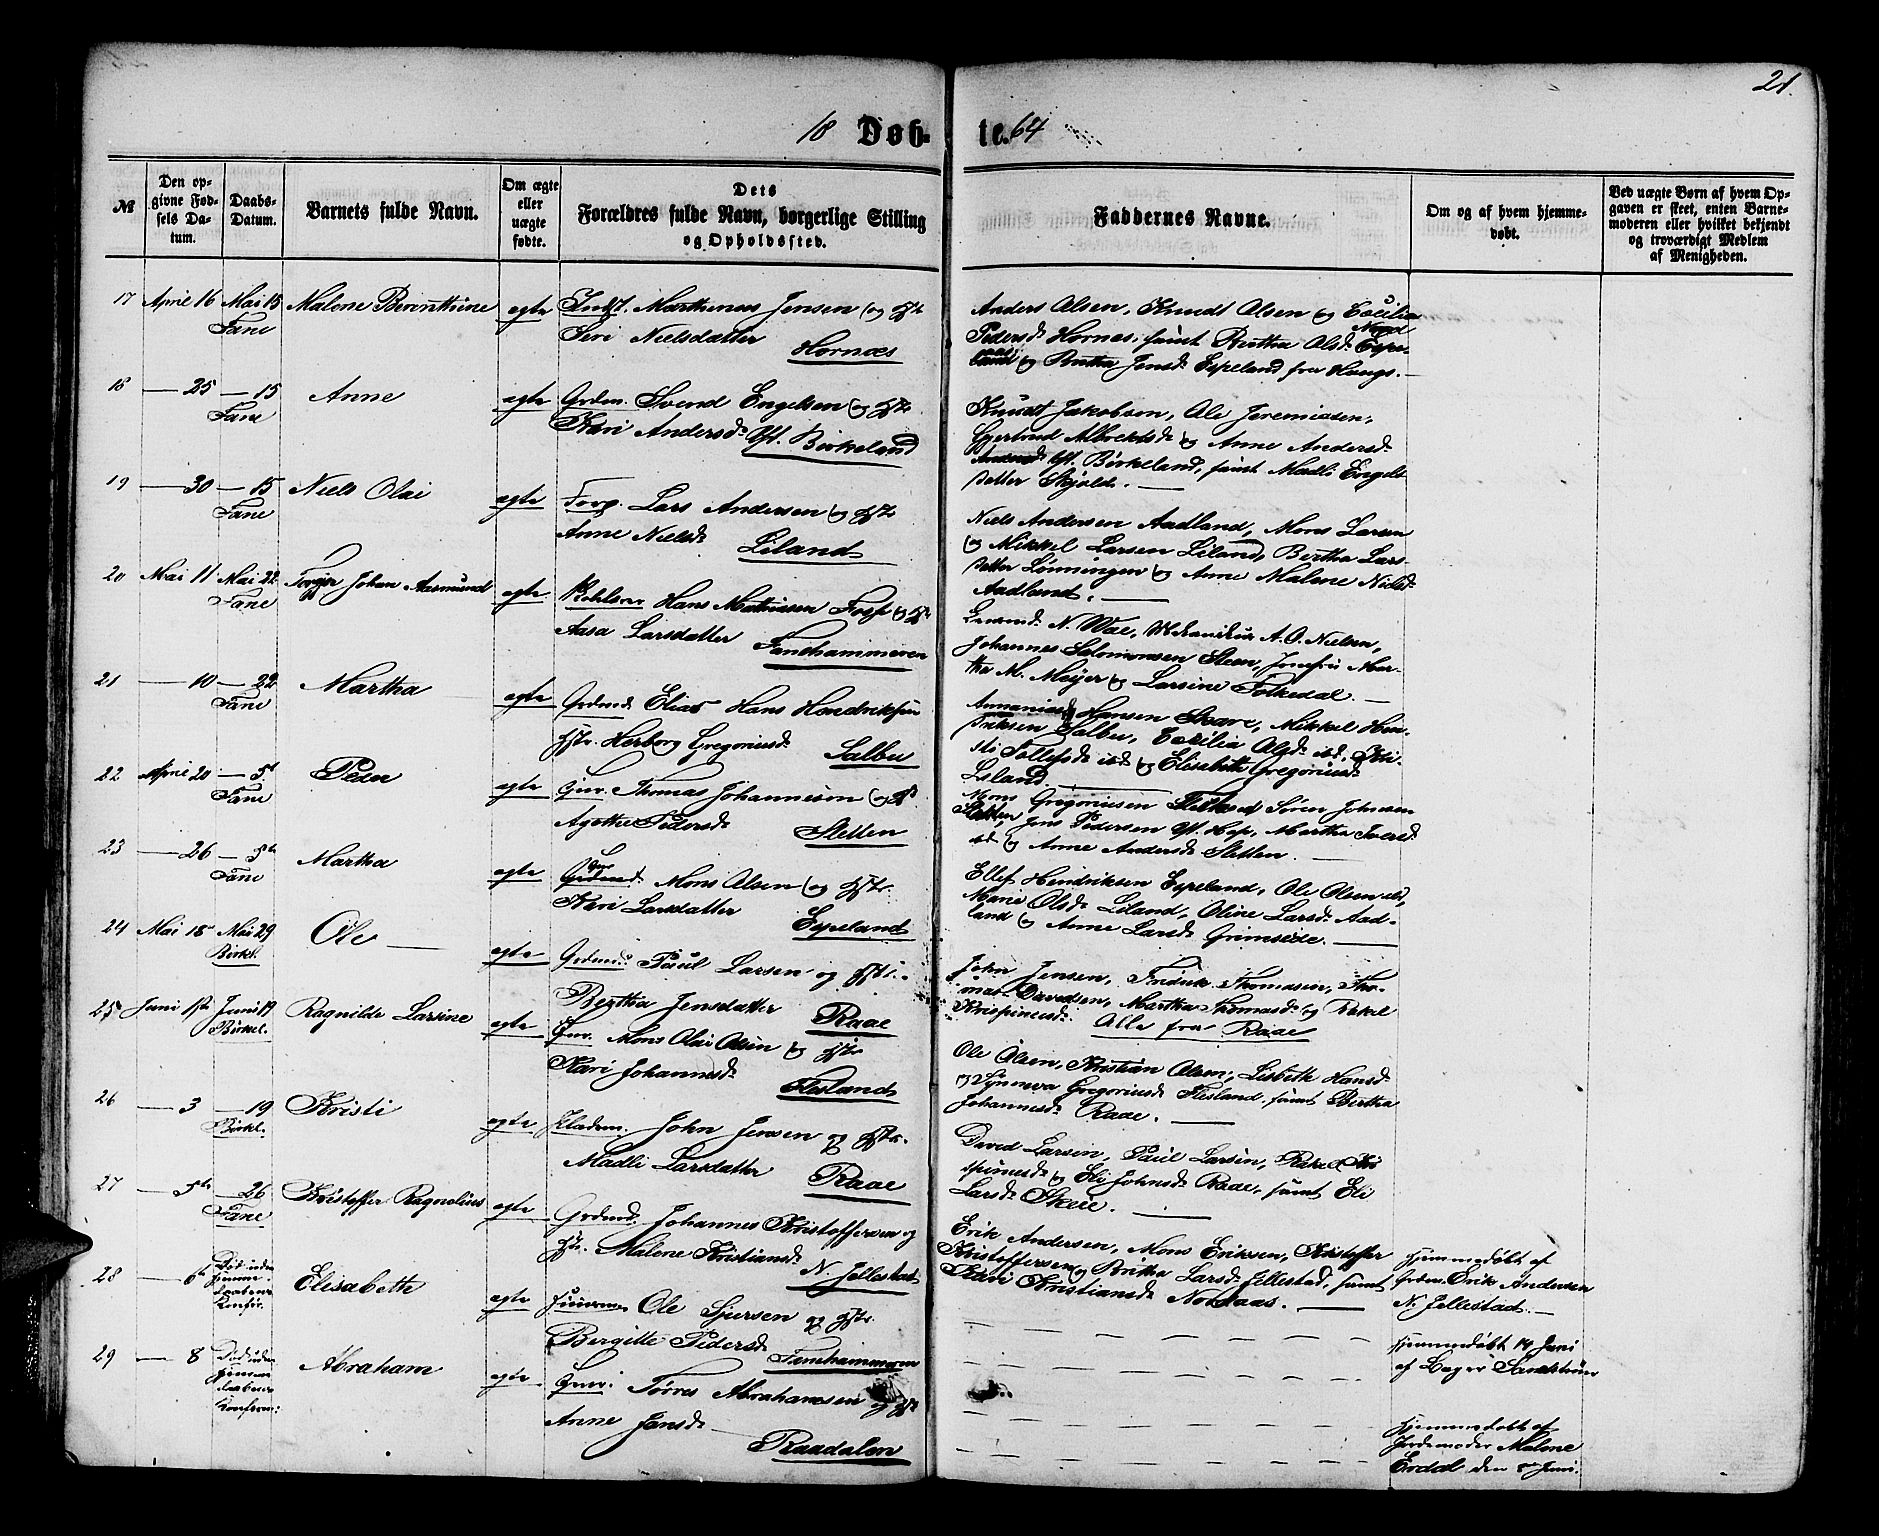 21.
18 Døb- te. 64
№
Den op-
givne Fød-
sels Da-
tum.
Daabs-
Datum.
Barnets fulde Navn.
Om ægte
eller
uægte
fødte.
Dets
Forældres fulde Navn, borgerlige Stilling
og Opholdssted.
Faddernes Navne.
Om og af hvem hjemme-
døbt.
Ved uægte Børn af hvem Op-
gaven er skeet, enten Barne-
moderen eller hvilket bekjendt
og troværdigt Medlem
af Menigheden.
17 April 16 Mai 15 Malene Berenthine egte Indst. Marthinus Jensen og Hstr
Fane Siri Nielsdatter
Hornæs
Anders Olsen, Knudt Olsen og Cecilia
Pedersd. Hornæs, samt Bertha Olsd. Espe-
land og Brita Jensd. Espeland fra Haugs. —
18 — 25 — 15 Anne egte Grdm. Svend Engelsen og Hstr.
Fane Kari Andersd. Yt. Birkeland
Knudt Jakobsen, Ole Jeremiasen,
Gjertrud Albrektsd. og Anne Andersd.
Yt. Birkeland, samt Madli Engels-
datter Skjold. —
19 — 30 — 15 Niels Olai egte Forp. Lars Andersen og Hstr.
Fane Anne Nielsd.
Liland
Niels Andersen Aadland, Mons Larsen
og Mikkel Larsen Liland, Bertha Lars-
datter Lønningen og Anne Malene Nielsd.
Aadland. —
20 Mai 11 Mai 22 Torger Johan Aasmund egte Hans Mathiesen Foss og Hstr
Fane Aasa Larsdatter
Fanehammeren
N. Wae, Mekanikus A. O. Nielsen,
Johannes Salomonsen Steen, Jomfru Mar-
tha M. Meyer og Larsine Folkedal. —
21 — 10 — 22 Martha egte Grdmd. Elias Hans Hendriksen
Fane Hstr. Herborg Gregoriusd.
Salbu
Annanias Hansen Skare, Mikkel Hen-
driksen Salbu, Cecilia Olsd. ibd., Kri-
sti Tollefsd. ibd. og Elisabeth Gregoriusd.
Liland.
22 April 20 — 5t Peder egte Gmr. Thomas Johannesen og Hstr
Fane Agathe Pedersd.
Sletten
Mons Gregoriusen Søren Johnsen
Sletten, Jens Pedersen Yt. Hop, Martha Iversd.
ibd. og Anne Andersd. Sletten. —
23 — 26 — 5te Martha egte Mons Olsen og Hstr.
Fane Kari Larsdatter
Espeland
Ellef Hendriksen Espeland, Ole Olsen ibd,
Marie Olsd. Liland, Oline Larsd. Aad-
land og Anne Larsd. Grimseide. —
24 Mai 18 Mai 29 Ole — egte Grdmd. Paul Larsen og Hstr.
Birkl. Bertha Jensdatter
Raae
John Jensen, Fredrik Thomassen, Tho-
mas Davidsen, Martha Thomasd. og Rakel
Krispinusd. Alle fra Raae
25 Juni 1ste Juni 19 Ragnilde Larsine egte Gmr. Mons Olai Olsen og Hstr
Birkel. Kari Johannesd.
Flesland
Ole Olsen, Kristian Olsen, Lisbeth Hansd.
og Synneva Gregoriusd. Flesland, samt Bertha
Johannesd. Raae. —
26 — 3 — 19 Kristi egte John Jensen og Hstr.
Birkl. Madli Larsdatter
Raae
David Larsen, Paul Larsen, Rakel Kri-
spinusd. og Eli Johnsd. Raae, samt Eli
Larsd. Skeie. —
27 — 5te — 26 Kristoffer Ragnolius egte Grdmd. Johannes Kristoffersen og
Fane Hstr. Malene Kristiansd.
N. Jellestad
Erik Andersen, Mons Eriksen, Kristoffer
Kristoffersen og Britha Larsd. Jellestad, samt
Kari Kristiansd. Nordaas. —
Hjemmedøbt af
Grdm. Erik Andersen
N. Jellestad. —
28 — 6t Død uden
hjemme-
daabens
Konfir.
Elisabeth egte Ole Sjursen og Hstr.
Bergitte Pedersd.
Fanehammeren
Hjemmedøbt 14 Juni
af
29 — 8 Død uden
hjemme-
daabens
Konfirm:
Abraham egte Gmr. Tørres Abrahamsen og Hstr
Anne Jansd.
Raadalen
Hjemmedøbt af
Jordemoder Malene
Erdal den 8de Juni.